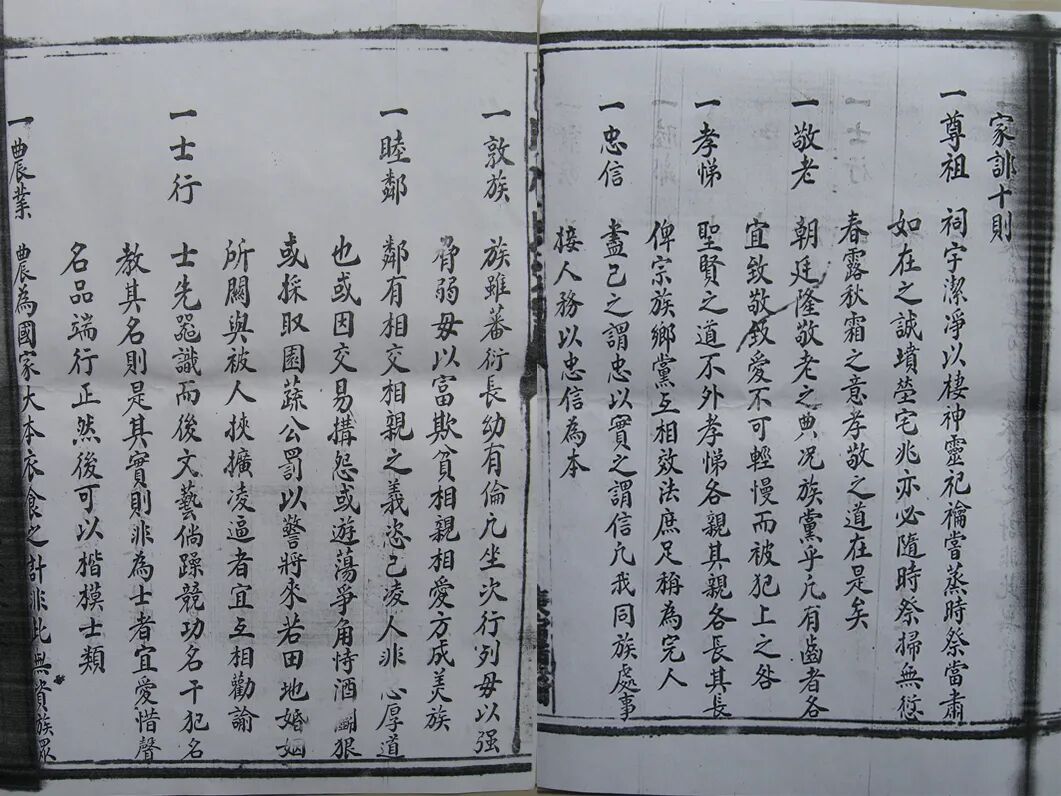 家訓十則
一尊祖 祠宇潔淨以棲神靈祀禴嘗蒸時祭當肅
如在之誠墳塋宅兆亦必隨時祭掃無愆
春露秋霜之意孝敬之道在是矣
一敬老 朝廷隆敬老之典况族黨乎凢有齒者各
宜致敬致愛不可輕慢而被犯上之咎
一孝悌 聖賢之道不外孝悌各親其親各長其長
俾宗族鄉黨互相效法庶足稱為完人
一忠信 盡己之謂忠以實之謂信凢我同族處事
接人務以忠信為本
一敦族 族雖蕃衍長幼有倫凢坐次行列毋以强
脅弱毋以富欺貧相親相愛方成美族
一睦鄰 鄰有相交相親之義恣己凌人非 心厚道
也或因交易搆怨或遊蕩爭角恃酒鬭狠
或採取園蔬公罰以警將來若田地婚姻
所關與被人挾擴凌逼者宜互相勸諭
一士行 士先噐識而後文藝倘躁競功名干犯名
教其名則是其實則非為士者宜愛惜聲
名品端行正然後可以楷模士類
一農業 農為國家大本衣食之計非此無資族眾